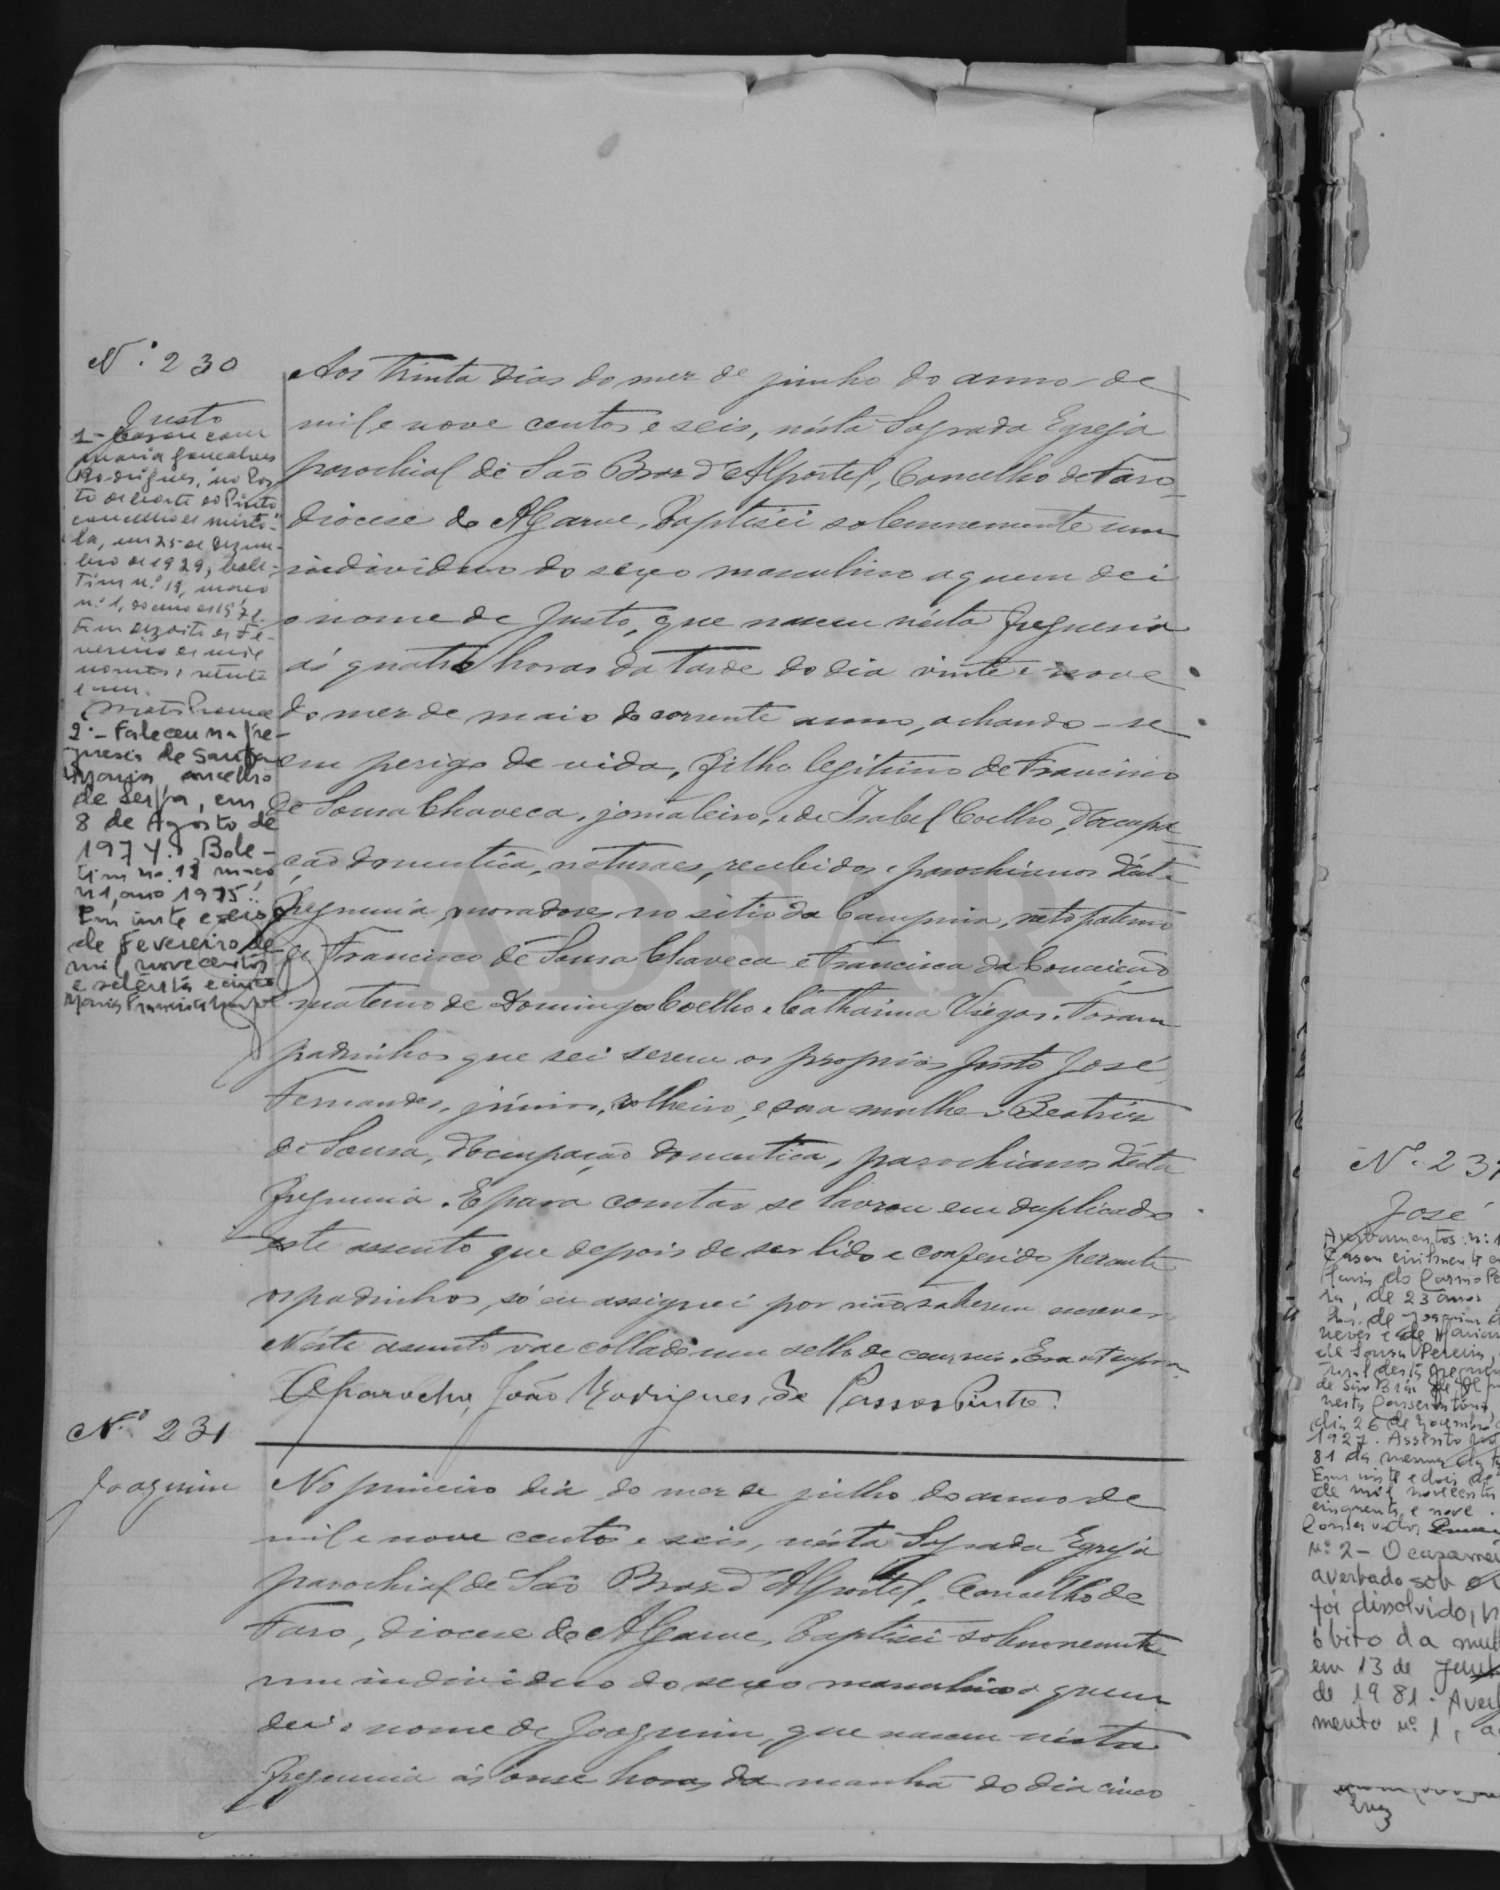 N.º 230
Justo
1 - Casou com
Maria Gonçalves
Rodrigues, no Pos-
to de Corte do Pinto
concelho de Mérto-
la, em 25 de Dezem-
bro de 1929, bole-
tim n.º 19, maço
n.º 1, do ano de 1971.
Em dezoito de Fe-
vereiro de mil
novecentos e setenta
e um.
2.- Faleceu na fre-
guesia de Santa
Maria, concelho
de Serpa, em
8 de Agosto de
1974. Bole-
tim no. 18 maço
n 1, ano 1975.
Em vinte e seis
de Fevereiro de
mil novecentos
e setenta e cinco
Aos trinta dias do mez de junho do anno de
mil e nove centos e seis, nésta Sagrada Egreja
parochial de São Braz d'Alportel, Concelho de Faro
diocese do Algarve, baptisei solemnemente um
individuo do sexo masculino a quem dei
o nome de Justo, que nasceu nésta freguesia
ás quatro horas da tarde do dia vinte e nove
do mez de maio do corrente anno, achando-se
em perigo de vida, filho legitimo de Francisco
de Sousa Chaveca, jornaleiro, e de Isabel Coelho, d'occupa-
ção domestica, naturaes, recebidos e parochianos désta
freguesia, moradores no sitio da Campina, neto paterno
de Francisco de Sousa Chaveca e Francisca da Conceição
materno de Domingos Coelho e Catharina Viegas. Foram
padrinhos que sei serem os proprios Justo José
Fernandes, júnior, rolheiro, e sua mulher Beatriz
de Sousa, d'occupação domestica, parochianos désta
freguesia. E para constar se lavrou em duplicado
este assento que depois de ser lido e conferido perante
os padrinhos, só eu assignei por não saberem escrever
Néste assento vae collado um sello de cem reis. Era ut supra
O Parocho, João Rodrigues de Passos Pinto.
N.º 231
Joaquim
No primeiro dia do mez de julho do anno de
mil e nove centos e seis, nésta Sagrada Egreja
parochial de São Braz d'Alportel, Concelho de
Faro, diocese do Algarve, baptisei solemnemente
um individuo do sexo masculino a quem
dei o nome de Joaquim, que nasceu nésta
freguesia ás onse horas da manhã do dia cinco
N.º 23
José
Averbamentos: n.º 1
Casou civilmente
de 23 anos
de Sousa Pereira
dia 26 de
1927. Assento
81 da mesma
Em vinte e dois de
de mil novecentos
cinquenta e nove.
N.º 2 - O casamen
averbado sob o
foi dissolvido, p
óbito da mulh
em 13 de
de 1981. Averb
mento n.º 1, a
ADFAR